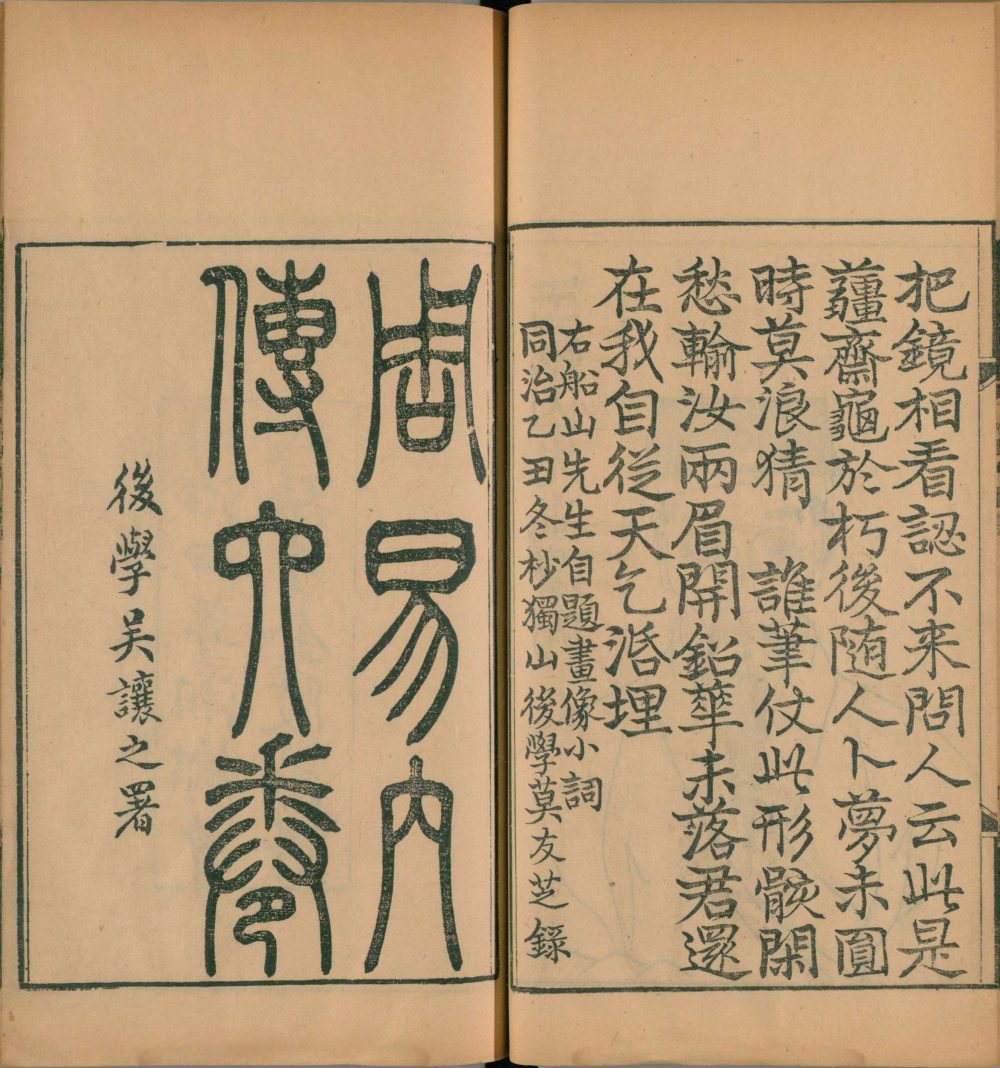 把鏡相看認不来問人云此是
薑齋龜於朽後随人卜夢未圓
時莫浪猜　誰筆仗此形骸閑
愁輸汝兩眉開鉛華未落君還
在我自從天乞活埋
右船山先生自題畫像小詞
同治乙丑冬杪獨山後學莫友芝錄
周易內
傳六卷
後學吴讓之署